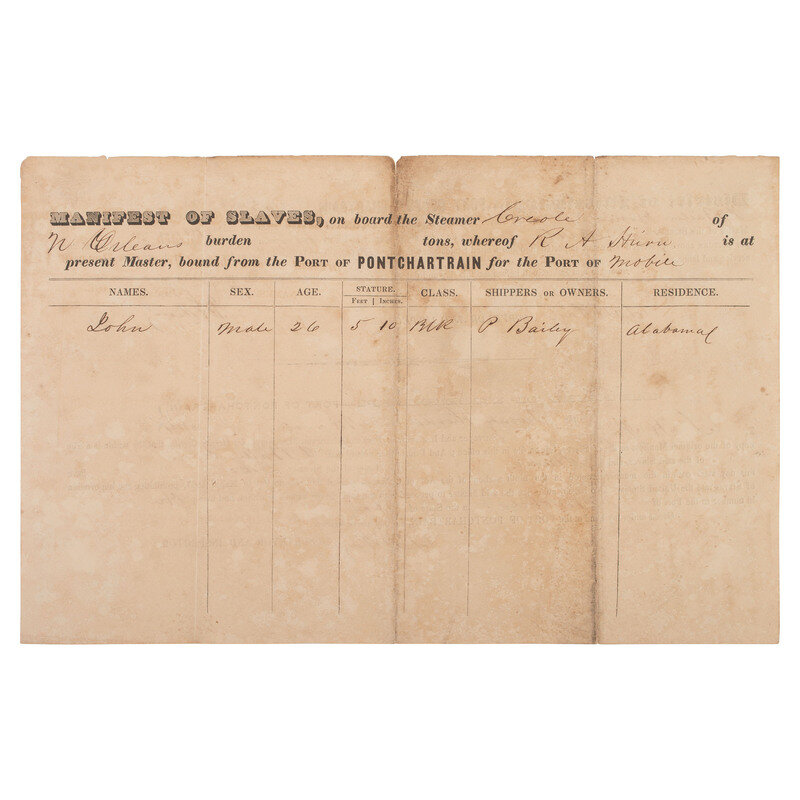 MANIFEST OF SLAVES, on board the Steamer Creole of
N Orleans burden tons, whereof R A Hiern is at
present Master, bound from the PORT OF PONTCHARTRAIN for the PORT OF Mobile
NAMES. SEX. AGE. STATURE. CLASS. SHIPPERS OR OWNERS. RESIDENCE.
FEET | INCHES.
John Male 26 5 10 Blk P Bailey Alabama